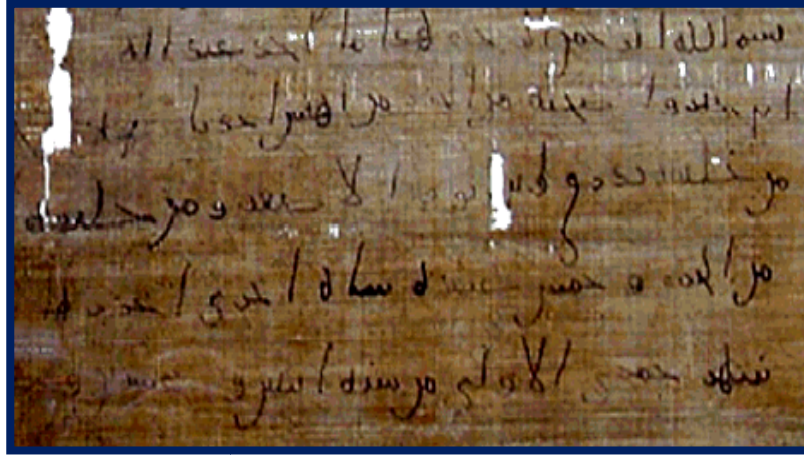 بسم الله الرحمن الرحيم هذا ما اخذ عبد اله
ابن جبر واصحبه من الجزر من اهنس اخذنا
من خليفه تدراق ابن ابو قير الاصغر ومن خليفه
من الجزر وخمس عشره شاه اخرى اجزرها
شهر جمدى الاولى من سنه اثنين وعشرين و